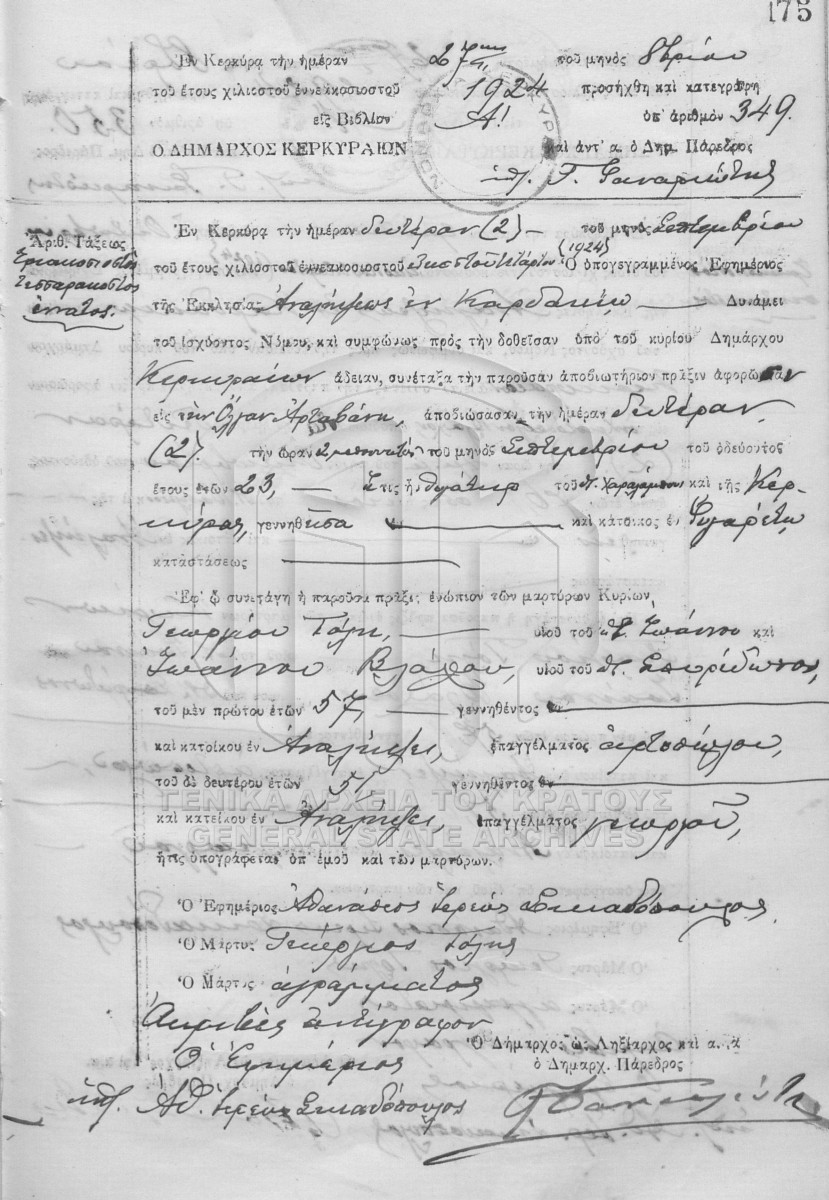 175
Ἐν Κερκύρᾳ τὴν ἡμέραν 27ην τοῦ μηνὸς 8βρίου
τοῦ ἔτους χιλιοστοῦ ἐννεακοσιοστοῦ 1924 προσήχθη καὶ κατεγράφη
εἰς Βιβλίον Α! ὑπ' ἀριθμὸν 349.
Ο ΔΗΜΑΡΧΟΣ ΚΕΡΚΥΡΑΙΩΝ καὶ ἀντ' α. ὁ Δημ. Πάρεδρος
ὑπ. Γ.
Ἀριθ. Τάξεως
Τριακοσιοστὸς
Τεσσαρακοστὸς
ἔννατος.
Ἐν Κερκύρᾳ τὴν ἡμέραν δευτέραν (2) τοῦ μηνὸς Σεπτεμβρίου
τοῦ ἔτους χιλιοστοῦ ἐννεακοσιοστοῦ εἰκοστοῦ τετάρτου (1924) Ὁ ὑπογεγραμμένος Ἐφημέριος
τῆς Ἐκκλησίας Ἀναλήψεως ἐν Καρδακίῳ Δυνάμει
τοῦ ἰσχύοντος Νόμου, καὶ συμφώνως πρὸς τὴν δοθεῖσαν ὑπὸ τοῦ κυρίου Δημάρχου
Κερκυραίων ἄδειαν, συνέταξα τὴν παροῦσαν ἀποβιωτήριον πρᾶξιν ἀφορῶσαν
εἰς τὴν Ὄλγαν Ἀρταβάνη, ἀποβιώσασαν τὴν ἡμέραν δευτέραν
(2) τὴν ὥραν τοῦ μηνὸς Σεπτεμβρίου τοῦ ὁδεύοντος
ἔτους ἐτῶν 23, ἥτις ἦν θυγάτηρ τοῦ π. Χαραλάμπους καὶ τῆς Κερ-
κύρας, γεννηθεῖσα καὶ κάτοικος ἐν Φιγαρέτῳ
καταστάσεως
Ἐφ' ᾧ συνετάγη ἡ παροῦσα πρᾶξις ἐνώπιον τῶν μαρτύρων Κυρίων,
Γεωργίου Τόλη, υἱοῦ τοῦ π. Ἰωάννου καὶ
Ἰωάννου Βλάχου, υἱοῦ τοῦ π. Σπυρίδωνος,
τοῦ μὲν πρώτου ἐτῶν 57, γεννηθέντος
καὶ κατοίκου ἐν Ἀναλήψει, ἐπαγγέλματος ἀρτοπώλου,
τοῦ δὲ δευτέρου ἐτῶν 51, γεννηθέντος
καὶ κατοίκου ἐν Ἀναλήψει, ἐπαγγέλματος γεωργοῦ,
ἥτις ὑπογράφεται ὑπ' ἐμοῦ καὶ τῶν μαρτύρων.
ΓΕΝΙΚΑ ΑΡΧΕΙΑ ΤΟΥ ΚΡΑΤΟΥΣ
GENERAL STATE ARCHIVES
Ὁ Ἐφημέριος Ἀθανάσιος Ἱερεὺς Σκιαδόπουλος
Ὁ Μάρτυς Γεώργιος Τόλης
Ὁ Μάρτυς ἀγράμματος
Ἀκριβὲς ἀντίγραφον
Ὁ Ἐφημέριος
ὑπ. Ἀθ. Ἱερεὺς Σκιαδόπουλος
Ὁ Δήμαρχος ὡς Ληξίαρχος καὶ α. α
ὁ Δημαρχ. Πάρεδρος